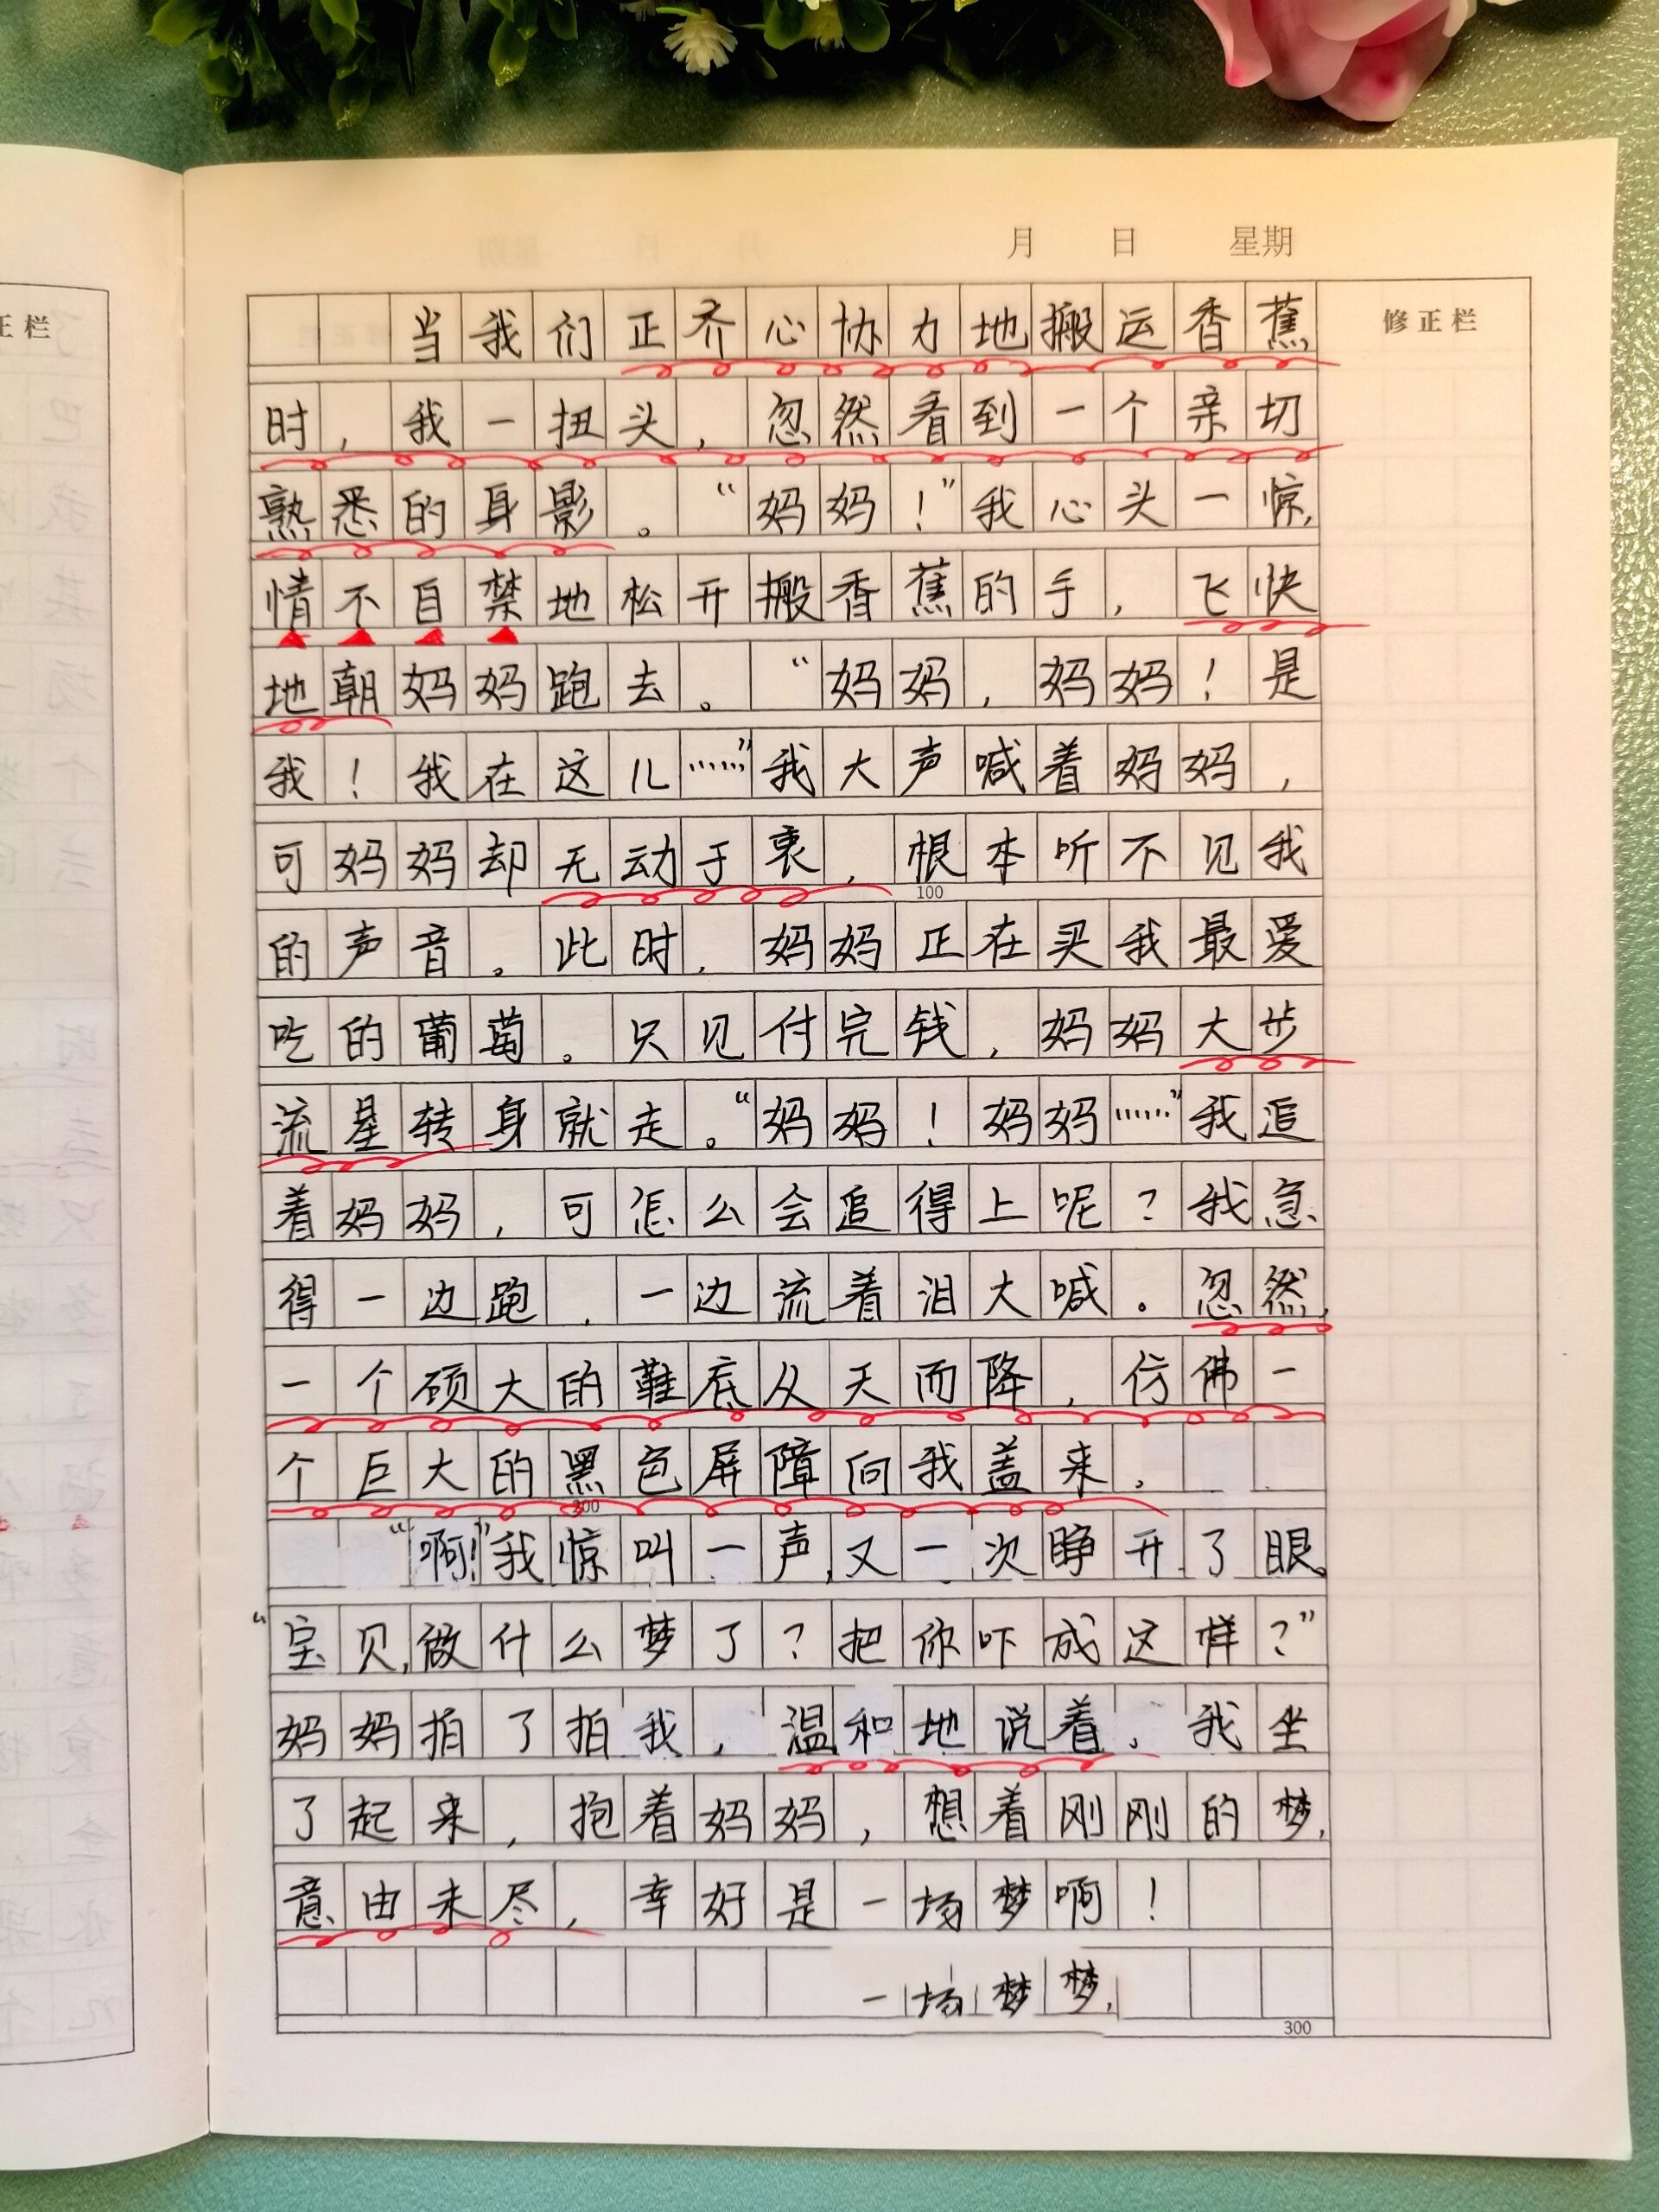 月 日 星期
正栏
修正栏
当我们正齐心协力地搬运香蕉
时，我一扭头，忽然看到一个亲切
熟悉的身影。“妈妈！”我心头一惊，
情不自禁地松开搬香蕉的手，飞快
地朝妈妈跑去。“妈妈，妈妈！是
我！我在这儿……”我大声喊着妈妈，
可妈妈却无动于衷，根本听不见我
100
的声音。此时，妈妈正在买我最爱
吃的葡萄。只见付完钱，妈妈大步
流星转身就走。“妈妈！妈妈……”我追
着妈妈，可怎么会追得上呢？我急
得一边跑，一边流着泪大喊。忽然，
一个硕大的鞋底从天而降，仿佛一
个巨大的黑色屏障向我盖来，
200
“啊！”我惊叫一声，又一次睁开了眼。
“宝贝，做什么梦了？把你吓成这样？”
妈妈拍了拍我，温和地说着。我坐
了起来，抱着妈妈，想着刚刚的梦，
意由未尽，幸好是一场梦啊！
一场梦梦，
300